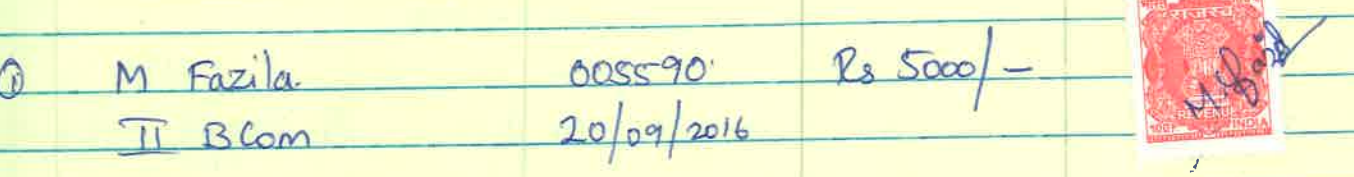 ① M Fazila. 005590 Rs 5000/-
II BCom 20/09/2016
राजस्व
REVENUE
INDIA